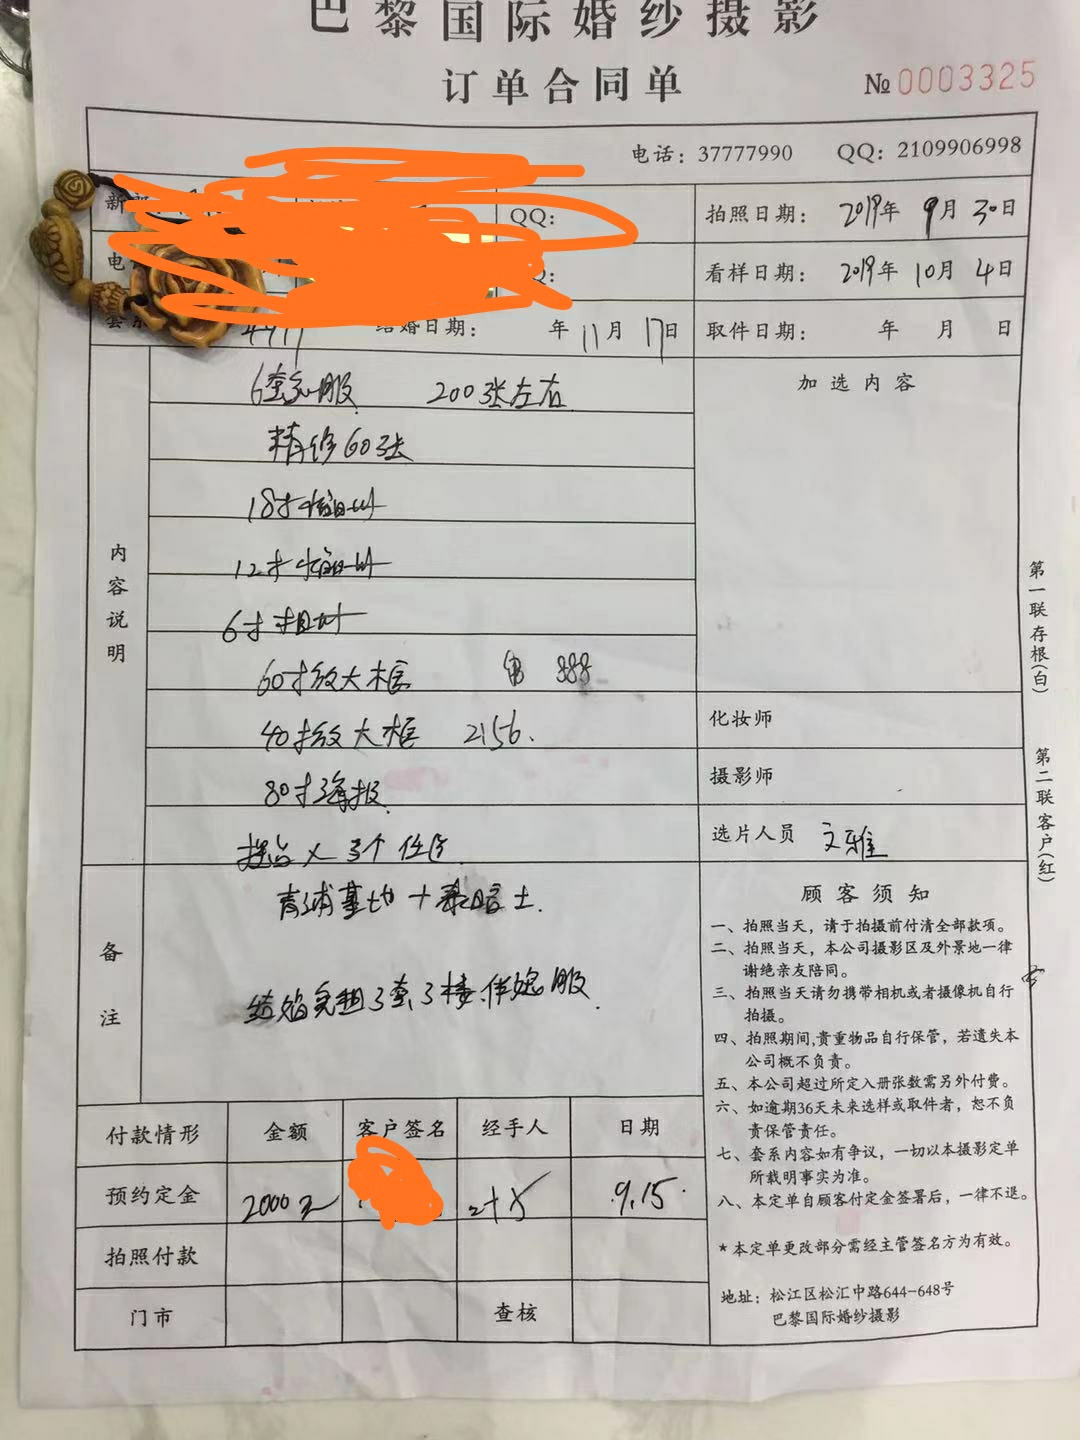 巴黎国际婚纱摄影
订单合同单
№ 0003325
电话：37777990 QQ：2109906998
新 QQ： 拍照日期： 2019年 9月 30日
电 Q： 看样日期： 2019年 10月 4日
套系 结婚日期： 年 11月 17日 取件日期： 年 月 日
内容说明
6套 服 200张左右
精修60张
18寸
12寸
6寸相册
60寸放大框 888
40寸放大框 2156.
80寸海报
3个
加选内容
化妆师
摄影师
选片人员 文雅
备注
青浦基地 +
结婚 3套
第一联存根(白)
第二联客户(红)
顾客须知
一、拍照当天，请于拍摄前付清全部款项。
二、拍照当天，本公司摄影区及外景地一律
谢绝亲友陪同。
三、拍照当天请勿携带相机或者摄像机自行
拍摄。
四、拍照期间,贵重物品自行保管，若遗失本
公司概不负责。
五、本公司超过所定入册张数需另外付费。
六、如逾期36天未来选样或取件者，恕不负
责保管责任。
七、套系内容如有争议，一切以本摄影定单
所载明事实为准。
八、本定单自顾客付定金签署后，一律不退。
*本定单更改部分需经主管签名方为有效。
地址：松江区松汇中路644-648号
巴黎国际婚纱摄影
付款情形 金额 客户签名 经手人 日期
预约定金 2000元 9.15.
拍照付款
门市 查核